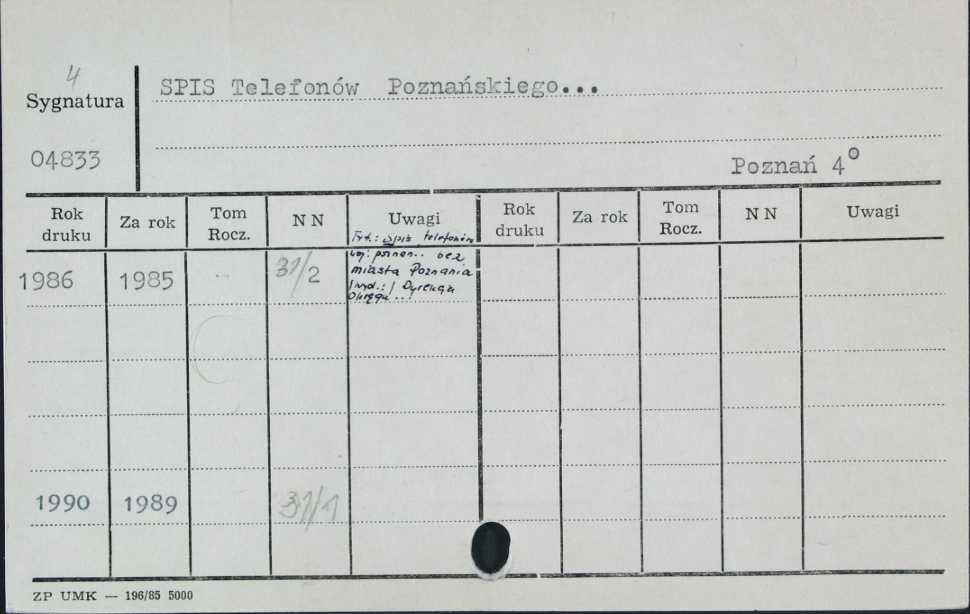 4
Sygnatura
SPIS Telefonów Poznańskiego...
04833
Poznań 4°
Rok druku Za rok Tom Rocz. N N Uwagi Rok druku Za rok Tom Rocz. N N Uwagi
Tyt.: Spis telefonów
woj. poznań.. bez
1986 1985 31/2 miasta Poznania
/wyd.:/ Dyrekcja
Okręgu...
1990 1989 31/1
ZP UMK — 196/85 5000